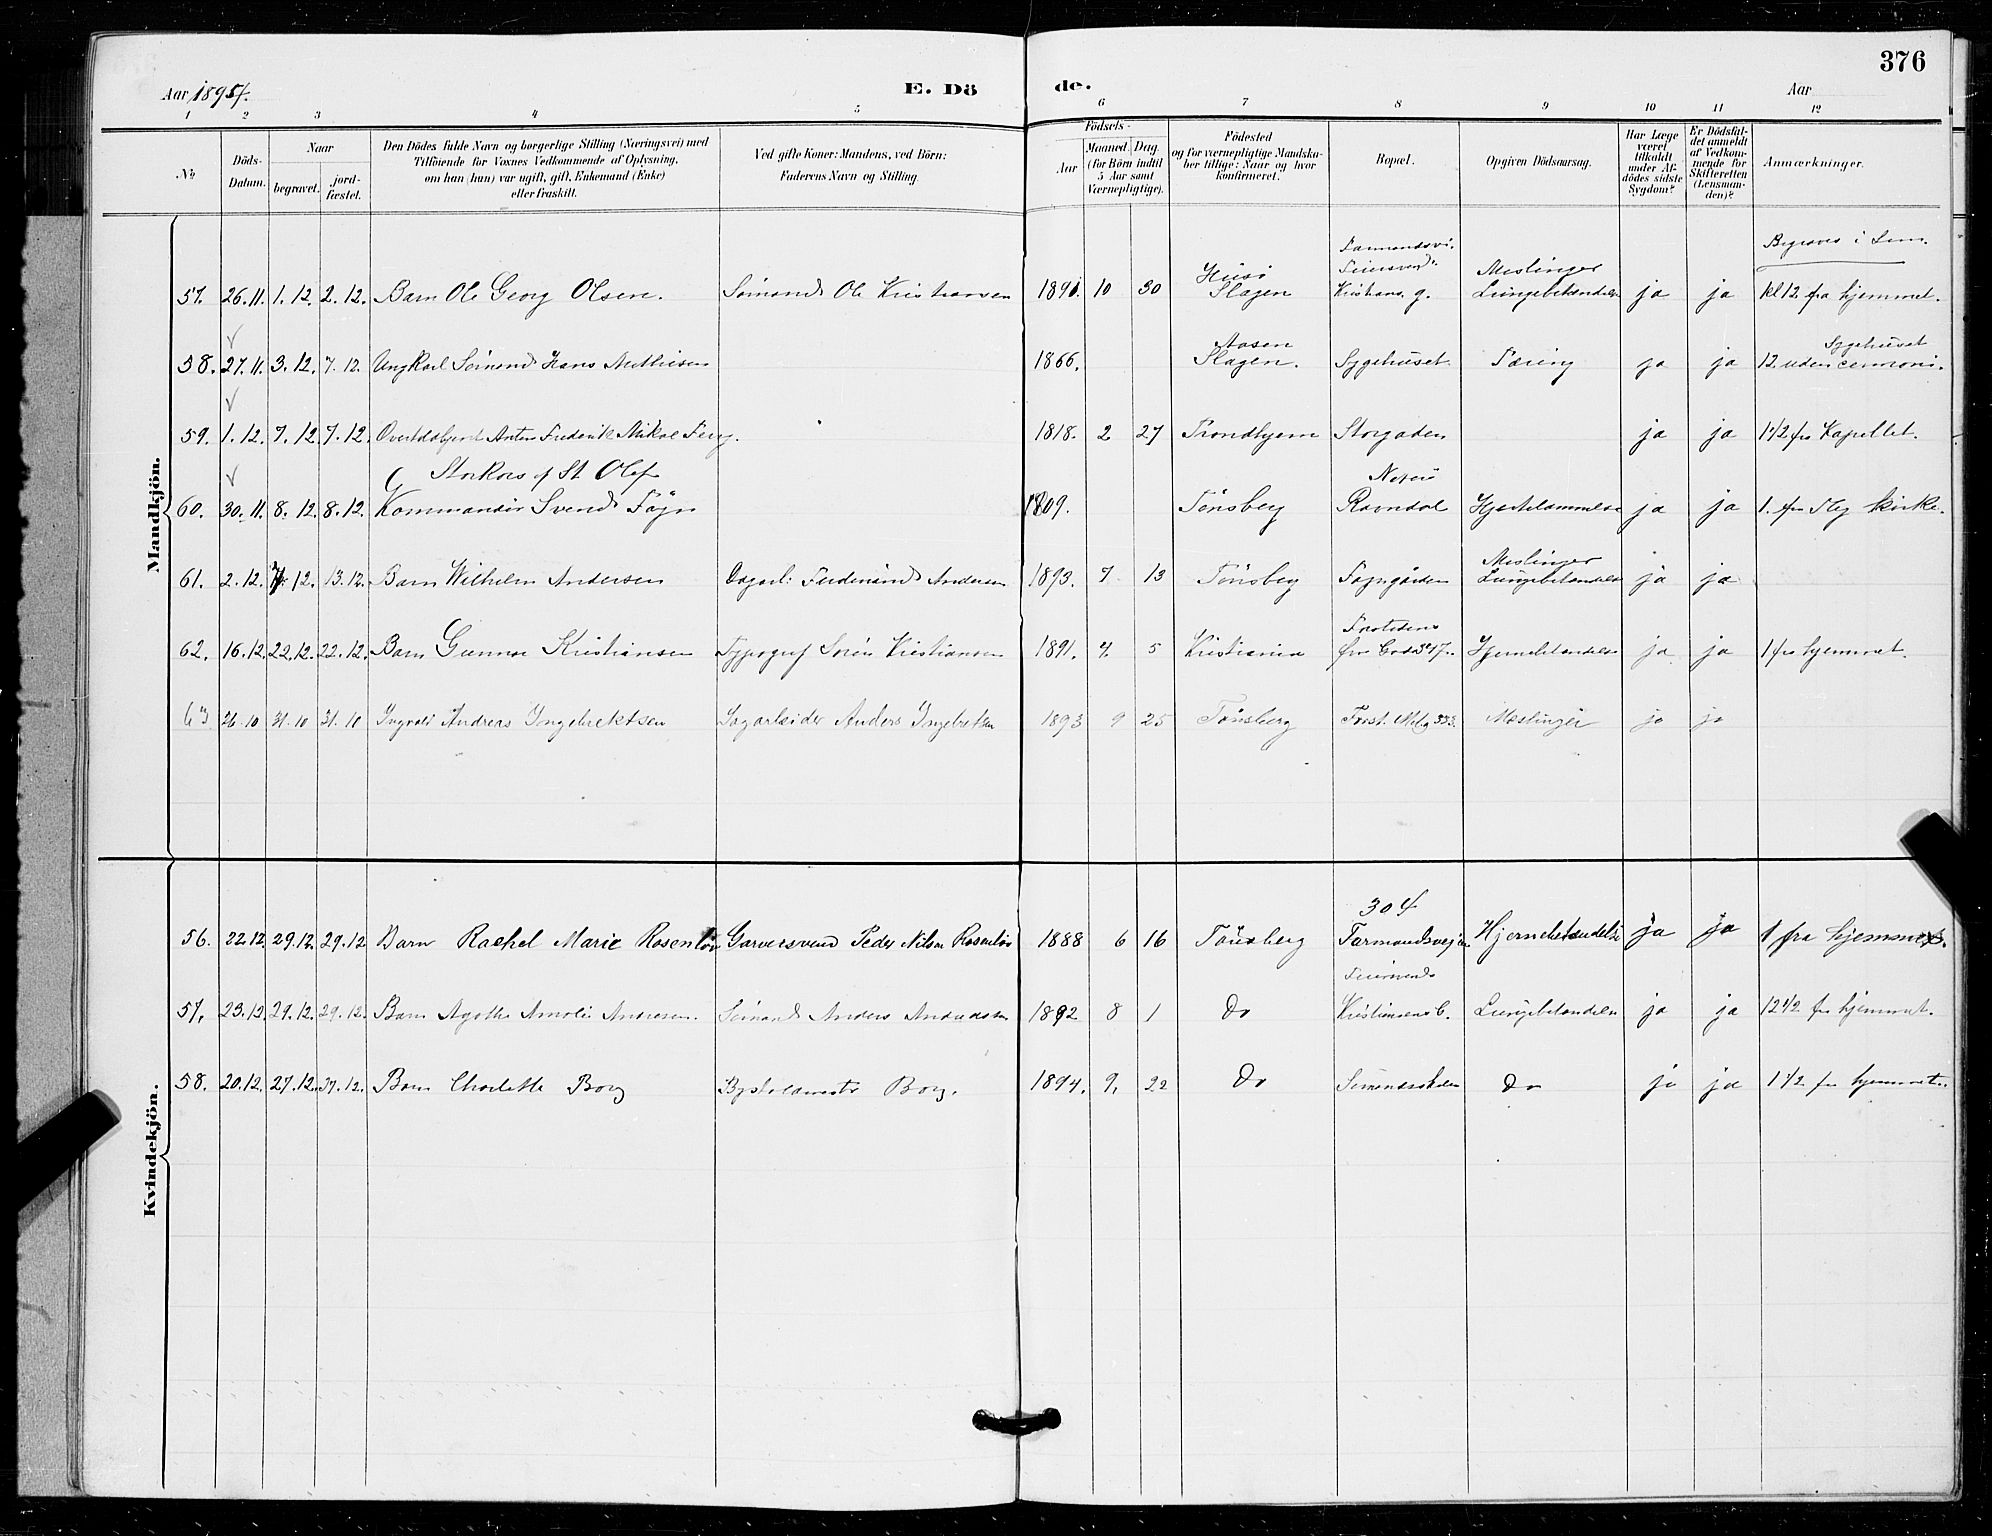 376
Aar 1894.
E. Dö
de.
Aar
1 2 3 4 5 6 7 8 9 10 11 12
No
Döds-Datum.
Naar
begravet.
jord-fæstet.
Den Dödes fulde Navn og borgerlige Stilling (Næringsvei) med
Tilföiende for Voxnes Vedkommende af Oplysning,
om han (hun) var ugift, gift, Enkemand (Enke)
eller fraskilt.
Ved gifte Koner: Mandens, ved Börn:
Faderens Navn og Stilling.
Födsels-
Aar
Maaned.
Dag.
(for Börn indtil
5 Aar samt
Værnepligtige).
Födested
og for værnepligtige Mandska-
ber tillige: Naar og hvor
konfirmeret.
Bopæl.
Opgiven Dödsaarsag.
Har Læge
været
tilkaldt
under Af-
dödes sidste
Sygdom?
Er Dödsfal-
det anmeldt
af Vedkom-
mende for
Skifteretten
(Lensman-
den)?
Anmærkninger.
Mandkjön.
Begraves i Sem.
57. 26.11. 1.12. 2.12. Barn Ole Georg Olsen. Sömand Ole Kristiansen 1891. 10 30 Husö Slagen Meslinger Lungebetændelse ja ja kl 12 fra hjemmet.
58. 27.11. 3.12. 7.12. Ungkarl Sömand Hans Mathisen 1866. Aasen Slagen. Sygehuset Tæring ja ja Sygehuset 12 uden ceremoni.
59. 1.12. 7.12. 7.12. Anton Frederik Nikolai 1818. 2 27 Trondhjem Storgaden ja ja 1 1/2 fra Kapellet.
Storkors af St Olaf
60. 30.11. 8.12. 8.12. Kommandör Svend Föyn 1809. Tönsberg Nöterö Ravndal Hjertelammelse ja ja 1. fra Tbg kirke.
61. 2.12. 7.12. 13.12. Barn Wilhelm Andersen Dagarb: Ferdinand Andersen 1893. 7 13 Tönsberg Föyngården Meslinger Lungebetændelse ja ja
62. 16.12. 22.12. 22.12. Barn Gunnar Kristiansen Typograf Sören Kristiansen 1891. 4. 5 Kristiania Hjernebetændelse ja ja 1 fra hjemmet.
63 26.10 31.10 31.10 Ingvald Andreas Ingebrektsen Sagarbeider Anders Ingebretsen 1893 9 25 Tönsberg 333. Meslinger ja ja
Kvindekjön.
304
56. 22.12 29.12. 29.12 Barn Rachel Marie Rosenlöv Garversvend Peder Nilsen Rosenlöv 1888 6 16 Tönsberg Farmandsvejen Hjernebetændelse ja ja 1 fra hjemmet.
57. 23.12 29.12. 29.12. Barn Agathe Amalie Andresen. Sömand Anders Andresen 1892 8 1 Do Feiersvend Kristiansens G. Lungebetændelse ja ja 12 1/2 fra hjemmet.
58. 20.12. 27.12. 27.12. Barn Charlotte Borg Borg. 1894. 9. 22 Do Sömandsskolen Do ja ja 1 1/2 fra hjemmet.